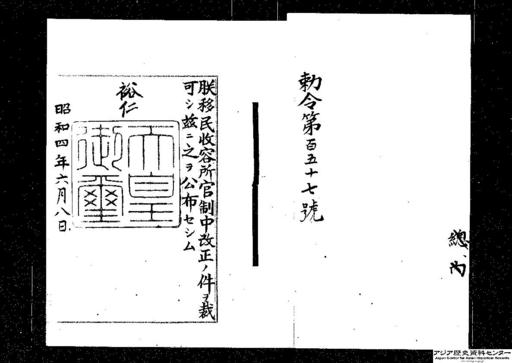 總、內
勅令第百五十七號
朕移民收容所官制中改正ノ件ヲ裁
可シ玆ニ之ヲ公布セシム
裕仁
天皇
御璽
昭和四年六月八日
アジア歴史資料センター
Japan Center for Asian Historical Records